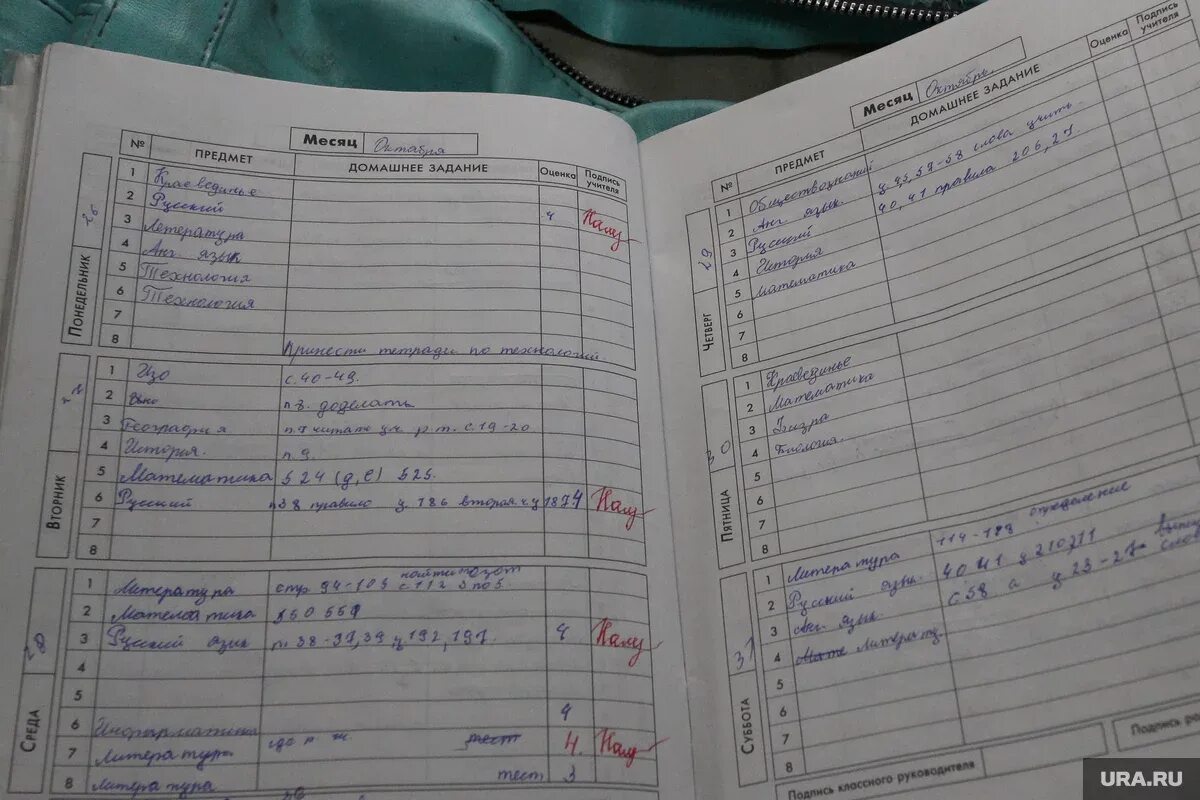 Месяц Октабря
№ ПРЕДМЕТ ДОМАШНЕЕ ЗАДАНИЕ Оценка Подпись учителя
ПОНЕДЕЛЬНИК
1 Краевединье
2 Русский 4
3 Летература
4 Анг язык
5 Технология
6 Технология
7
8 Принести тетради по технологий
ВТОРНИК
1 Изо с.40-49.
2 п.3. доделать
3 География читать р.т. с.19-20
4 История. п.9.
5 Математика 524 (д,е) 525.
6 Русский п38 правило у.186 вторая ч.у 187 4
7
8
СРЕДА
1 Литература стр 94-103 найти с 112 3 по 5.
2 Математика 560 559
3 Русский язик п 38-39,39 у 192, 197. 4
4
5
6 Информатика 4
7 Литература тест 4.
8 Литература тест 3
Месяц Октябрь
№ ПРЕДМЕТ ДОМАШНЕЕ ЗАДАНИЕ Оценка Подпись учителя
29 ЧЕТВЕРГ
1 Обществознаний
2 Анг. язык. у 45,57-58 слова учить
3 Русский 40,41 правила 206,27
4 История
5 математика
6
7
8
30 ПЯТНИЦА
1 Краевединье
2 Математика
3 Физра
4 Биология.
5
6
7
8
31 СУББОТА
1 Литература 114-118 определение
2 Русский язык. 40 41 у 210,211
3 Анг. язык. с 58 а у 23-27
4 Мате Литерату
5
6
7
8
Подпись классного руководителя
Подпись
URA.RU